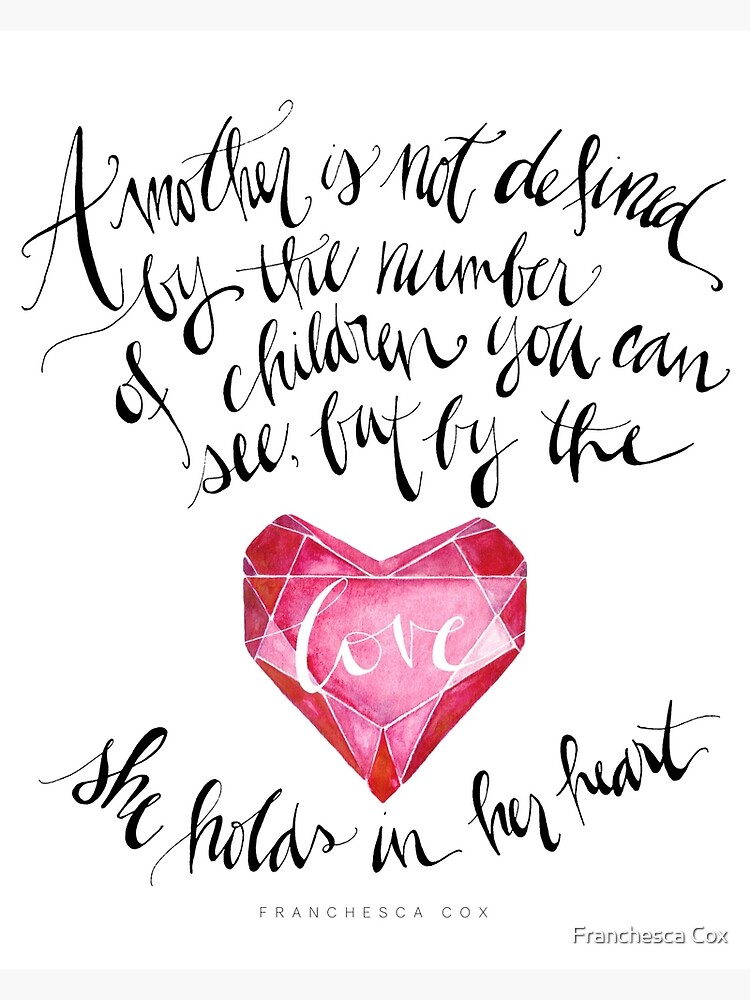 A mother is not defined
by the number
of children you can
see, but by the
love
she holds in her heart
FRANCHESCA COX
Franchesca Cox